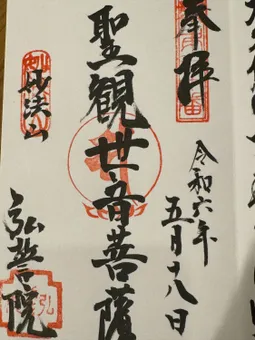 奉拝
令和六年
五月十八日
聖観世音菩薩
妙法山
弘誓院